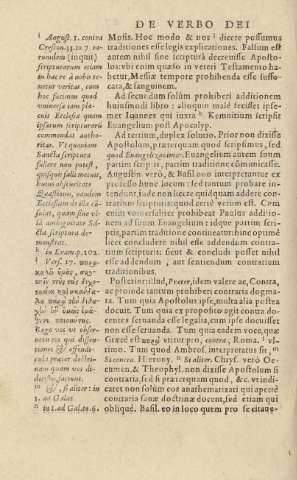 DE VERBO DEI
i August. l. contra
Crescon. 33. to 7. ea-
rundem (inquit)
scripturarum etiam
in hac re à nobis te-
netur veritas, cum
hoc facimus quod
vniuersæ iam pla-
cuit Ecclesiæ quam
ipsarum scripturarũ
commendat autho-
ritas. Vt quoniam
Sancta scriptura
fallere non potest,
quisquis falli metuit,
huius obscuritate
Quæstionis, eandem
Ecclesiam de illa cõ-
sulat, quam sine vl-
la ambiguitate Sã-
cta scriptura de-
monstrat.
k in Exam. p. 202.
l Vers. 17.
Rogo vos vt obser-
uetis eos qui dissen-
tiones & offendi-
cula præter doctri-
nam quam vos di-
faciunt.
m si aliter: in
1. ad Galat.
n in 1. ad Gal. to. 6.
Mosis. Hoc modo & nos i dicere possumus
traditiones esse legis explicationes. Falsum est
autem nihil sine scriptura decreuisse Aposto-
los: vbi enim quæso in veteri Testamento ha-
betur, Messiæ tempore prohibenda esse suffo-
cata, & sanguinem.
Ad secundum solùm prohiberi additionem
huiusmodi libro: alioquin malè fecisset ipse-
met Ioannes qui iuxta k Kemnitium scripsit
Euangelium post Apocalyp.
Ad tertium, duplex solutio. Prior non dixisse
Apostolum, præterquam quod scripsimus, sed
quod Euangelizauimus. Euangelium autem suum
partim scriptis, partim traditione cõmunicasse.
Augustin. verò, & Basil non interpretantur ex
proposito hunc locum, sed tantùm probare in-
tendunt, Iude non licere quidquam addere con-
trarium scripturis: quod certè verum est. Cum
enim vniuersaliter prohibeat Paulus additio-
nem ad suum Euangelium idque partim scri-
ptis, partim traditione contineatur: hinc optimè
licet concludere nihil esse addendum contra-
rium scripturis: sicut & concludi posset nihil
esse addendum, aut sentiendum contrarium
traditionibus.
Posterior: illud, Præter, idem valere ac, Contra,
ac proinde tantùm prohiberi contraria dogma-
ta. Tum quia Apostolus ipse, multa alia postea
docuit. Tum quia ex proposito agit contra do-
centes seruanda esse legalia, cum ipse docuisset
non esse seruanda. Tum quia eadem voce, quæ
Græcè est παρὰ vtitur pro, contra, Roma. l vl-
timo. Tum quod Ambros. interpretatus sit, m
Si contra. Hierony. n Si aliter. Chrys. verò Oe-
cumen. & Theophyl. non dixisse Apostolum si
contraria, sed si præterquam quod, &c. vt indi-
caret non solùm eos anathematizari qui apertè
contraria sanæ doctrinæ docent, sed etiam qui
obliquè. Basil. eo in loco quem pro se citaue-